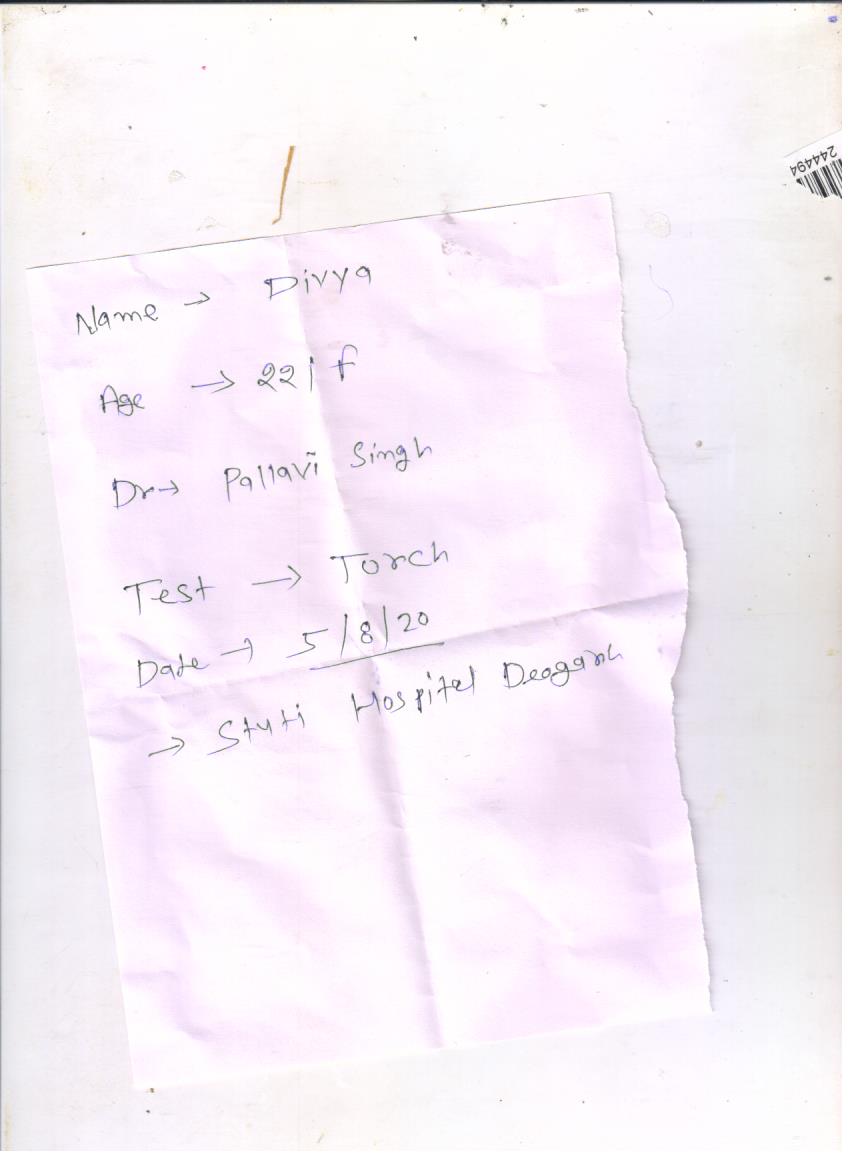 244494
Name → Divya
Age → 22 | f
Dr → Pallavi Singh
Test → Torch
Date → 5/8/20
→ Stuti Hospital Deogarh